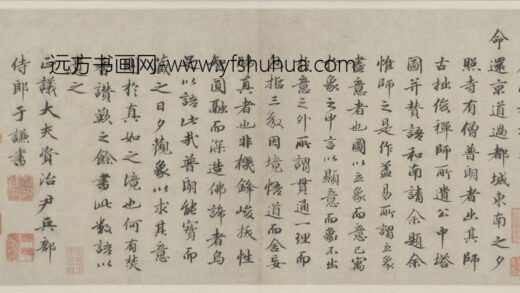 命還京道過都城東南之夕
照寺有僧普朗者出其師
古拙俊禪師所遺公中塔
圖并贊語和南請余題余
惟師之是作蓋易所謂立象
盡意者也圖以立象而意已寓
於象之中言以顯意而象不出
於意之外所謂貫通一理而
包括三教因境悟道而舍妄
歸真者也非機鋒峻拔性
智圓融而深造佛諦者烏
足以語此哉普朗能寶而
藏之日夕觀象以求其意
則於真如之境也何有焚
香讚歎之餘書此數語以
遺之
正議大夫資治尹兵部
侍郎于謙書
远方书画网-www.yfshuhua.com